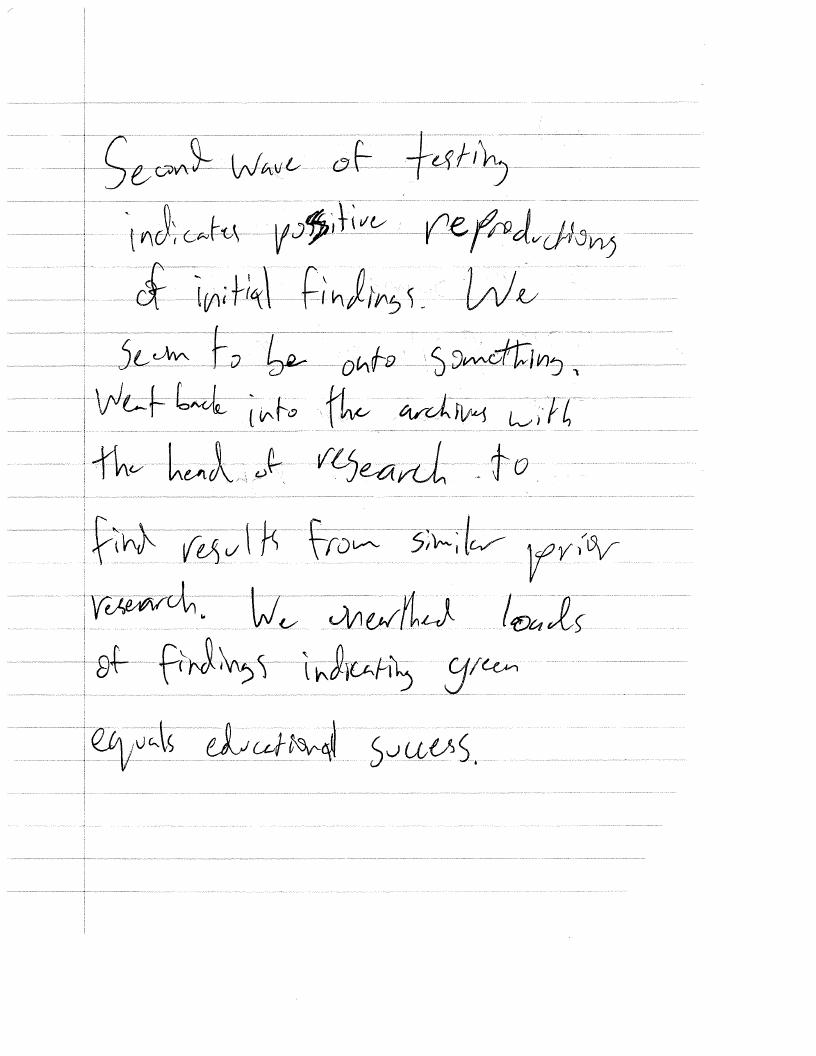 Second wave of testing
indicates positive reproductions
of initial findings. We
seem to be onto something.
Went back into the archives with
the head of research to
find results from similar prior
research. We unearthed loads
of findings indicating green
equals educational success.